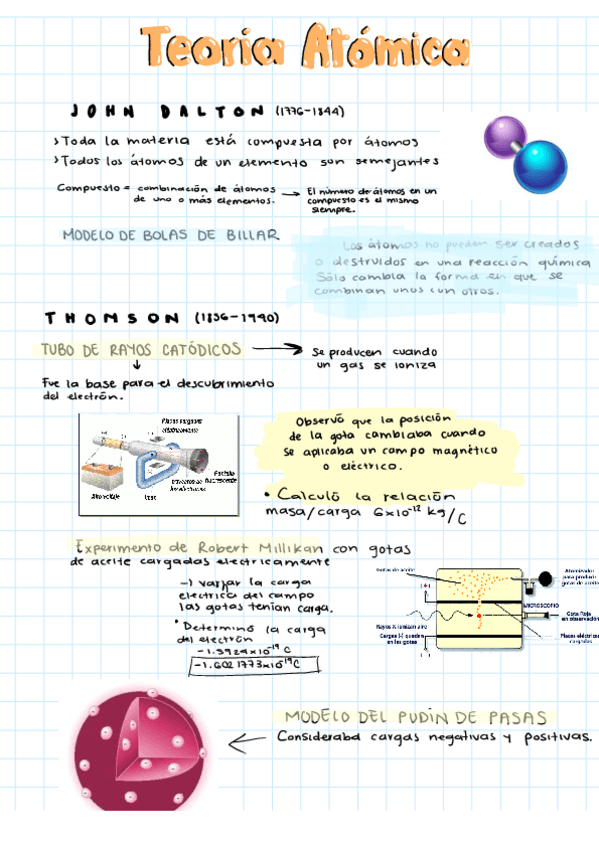 Teoría Atómica
JOHN DALTON (1776-1844)
>Toda la materia está compuesta por átomos
>Todos los átomos de un elemento son semejantes
Compuesto = combinación de átomos
de uno o más elementos.
El número de átomos en un
compuesto es el mismo
siempre.
MODELO DE BOLAS DE BILLAR
Los átomos no pueden ser creados
o destruidos en una reacción química
Sólo cambia la forma en que se
combinan unos con otros.
THOMSON (1856-1940)
TUBO DE RAYOS CATÓDICOS
Se producen cuando
un gas se ioniza
Fue la base para el descubrimiento
del electrón.
Placas cargadas
eléctricamente
Alto voltaje
Imán
Pantalla
fluorescente
Observó que la posición
de la gota cambiaba cuando
se aplicaba un campo magnético
o eléctrico.
• Calculó la relación
masa/carga 6x10⁻¹² kg/C
Experimento de Robert Millikan con gotas
de aceite cargadas electricamente
→ variar la carga
eléctrica del campo
las gotas tenían carga.
• Determinó la carga
del electrón
-1.5924x10⁻¹⁹ C
-1.6021773x10⁻¹⁹C
Gotas de aceite
Atomizador
para producir
gotas de aceite
(+)
MICROSCOPIO
Gota fija
en observación
Rayos X ionizan aire
Cargas (-) quedan
en las gotas
(-)
Placas eléctricas
cargadas
MODELO DEL PUDIN DE PASAS
Consideraba cargas negativas y positivas.